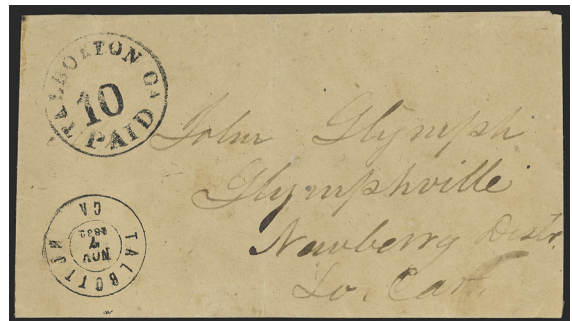 TALBOTTON Ga
10
PAID
TALBOTTON
GA
NOV
7
John Glymph
Glymphville
Newberry Distr.
So. Car.